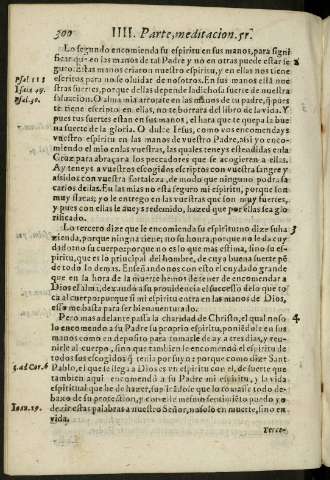 300 IIII. Parte, meditacion. 51.
Lo segundo encomienda su espiritu en sus manos, para signi-
ficar qu en las manos de tal Padre y no en otras puede estar se 2
guro. Estas manos criaron nuestro espiritu, y en ellas nos tiene
Psal 118 escritos para no se oluidar de nosotros. En sus manos está nue
Isaiæ 49. stras suertes, porque dellas depende la dichosa suerte de nuestra
Psal. 30. saluacion. O alma mia arrojate en las manos de tu padre, q̃ pues
te tiene escrito en ellas, no te borrará del libro de la vida. Y
pues tus suertes estan en sus manos, el hara que te quepa la bue
na suerte de la gloria. O dulce Iesus, como vos encomendays
vuestro espiritu en las manos de vuestro Padre, assi yo enco-
miendo el mio en las vuestras, las quales teneys estendidas en la
Cruz para abraçar a los peccadores que se acogieren a ellas.
Ay teneys a vuestros escogidos escriptos con vuestra sangre y
assidos con vuestra fortaleza, de modo que ninguno podrá sa
carlos dellas. En las mias no está seguro mi espiritu, porque son
muy flacas; yo le entrego en las vuestras que son muy fuertes,
y pues con ellas le aueys redemido, hazed que por ellas sea glo
rificado.
Lo tercero dize que le encomienda su espiritu no dize su ha 3
zienda, porque ninguna tiene; no su honra, porque no le da cuy
dado no su cuerpo porque no es lo que mas estima, sino su es-
piritu, que es lo principal del hombre, de cuya buena suerte pẽ
de todo lo demas. Enseñandonos con esto el cuydado grande
que en la hora de la muerte hemos de tener de encomendar a
Dios el alma, dexando a su prouidencia el successo de lo que to
ca al cuerpo porque si mi espiritu entra en las manos de Dios,
esso me basta para ser bienauenturado.
Pero mas adelante passa la charidad de Christo, el qual no so- 4
lo encomendo a su Padre su proprio espiritu, poniẽdole en sus
manos como en deposito para tomarle de ay a tres dias, y reu-
nirle al cuerpo, sino que tambien le encomendo el espiritu de
todos sus escogidos q̃ tenia por suyo: porque como dize Sant
1. ad Cor. 6 Pablo, el que se llega a Dios es vn espiritu con el, de suerte que
tambien aqui encomendó a su Padre mi espiritu, y la vida
espiritual que he de hazer, suplicãdole que lo tomasse todo de-
baxo de su protection, y con este mesmo sentimiẽto puedo yo
Ioan. 19. dezir estas palabras a nuestro Señor, no solo en muerte, sino en
vida.
Terce-